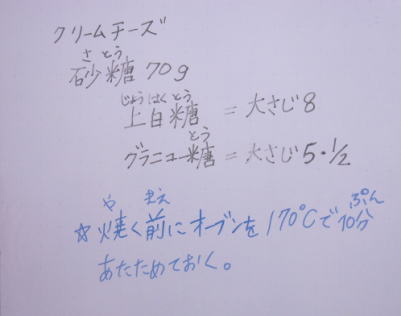 クリームチーズ
さ とう
砂糖 70g
じょうはくとう
上白糖 = 大さじ8
とう
グラニュー糖 = 大さじ5・1/2
や まえ ぷん
☆焼く前にオーブンを170℃で10分
あたためておく。